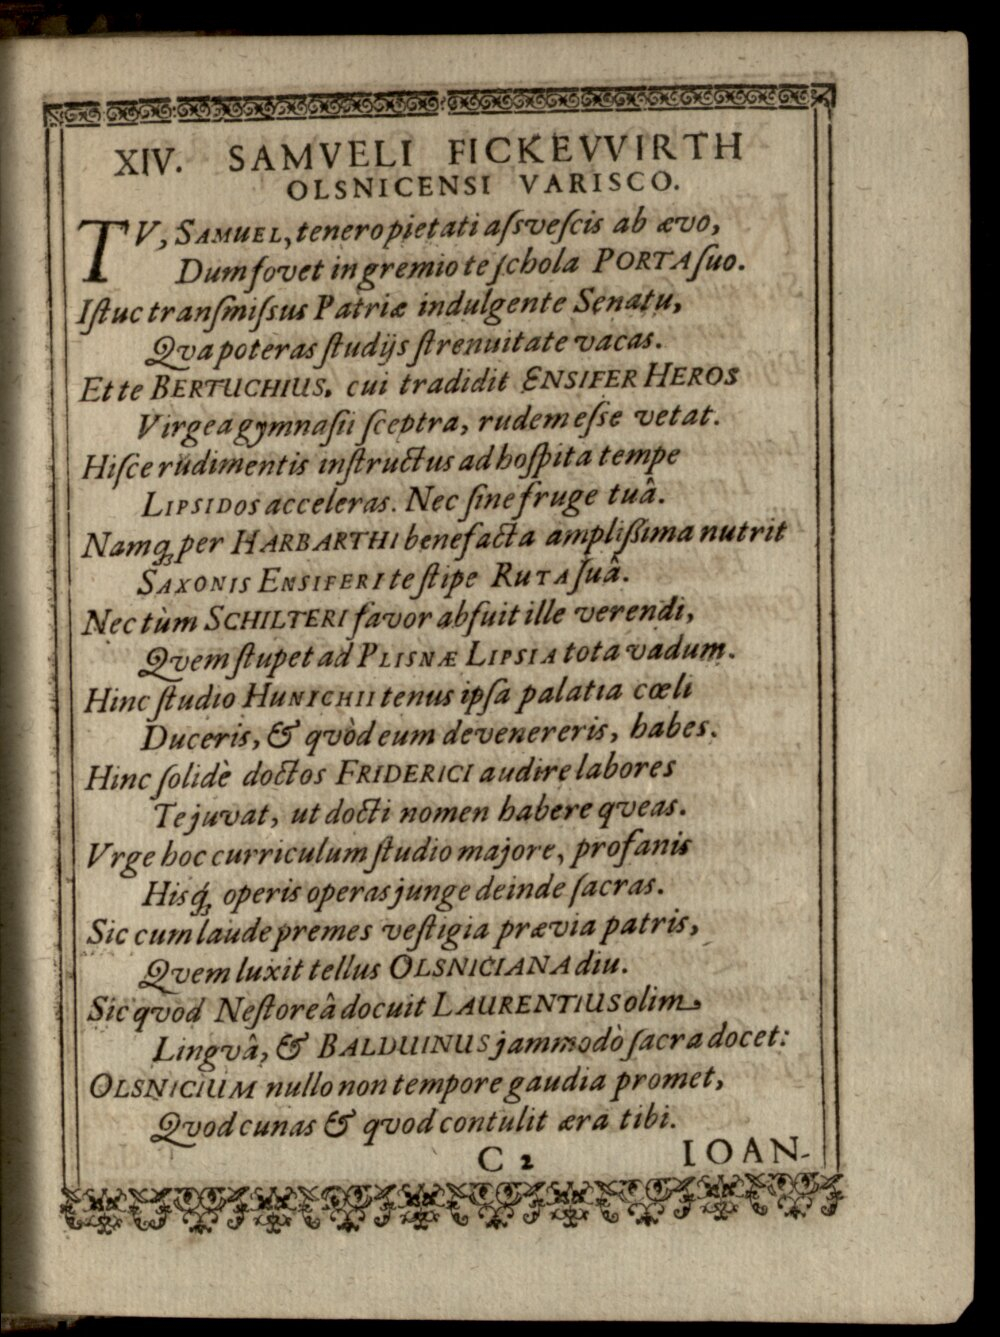 XIV. SAMVELI FICKEVVIRTH
OLSNICENSI VARISCO.
TV, SAMUEL, tenero pietati aſsveſcis ab ævo,
Dum fovet in gremio te ſchola PORTA ſuo.
Iſtuc tranſmiſsus Patriæ indulgente Senatu,
Qva poteras ſtudijs ſtrenuitate vacas.
Et te BERTUCHIUS, cui tradidit ENSIFER HEROS
Virgea gymnaſii ſceptra, rudem eſse vetat.
Hiſce rudimentis inſtructus ad hoſpita tempe
LIPSIDOS acceleras. Nec ſine fruge tuâ.
Namq́; per HARBARTHI benefacta ampliſsima nutrit
SAXONIS ENSIFERI te ſtipe RUTA ſuâ.
Nec tùm SCHILTERI favor abfuit ille verendi,
Qvem ſtupet ad PLISNÆ LIPSIA tota vadum.
Hinc ſtudio HUNICHII tenus ipſa palatia cœli
Duceris, & qvòd eum devenereris, habes.
Hinc ſolidè doctos FRIDERICI audire labores
Te juvat, ut docti nomen habere qveas.
Vrge hoc curriculum ſtudio majore, profanis
Hisq́; operis operas junge deinde ſacras.
Sic cum laude premes veſtigia prævia patris,
Qvem luxit tellus OLSNICIANA diu.
Sic qvod Neſtoreâ docuit LAURENTIUS olim
Lingvâ, & BALDUINUS jam modò ſacra docet:
OLSNICIUM nullo non tempore gaudia promet,
Qvod cunas & qvod contulit æra tibi.
C 2 IOAN-